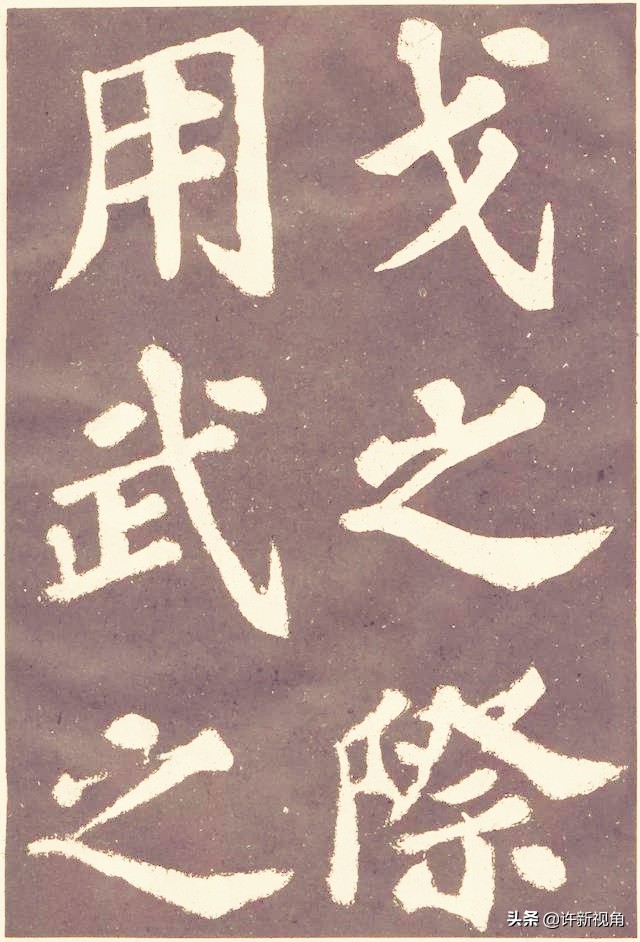 戈之際
用武之
头条 @许新视角